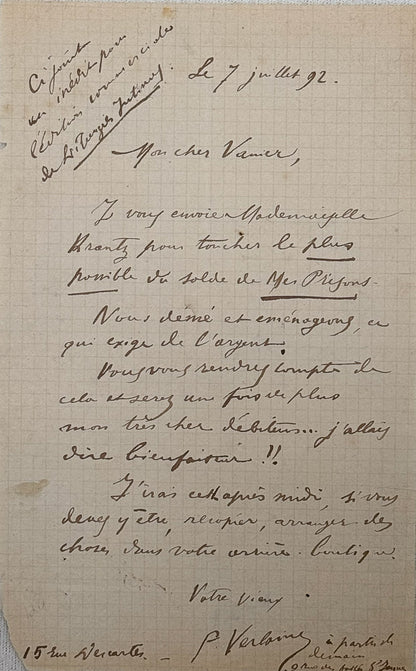 Ci joint
un inédit pour
l'édition commerciale
de Liturgies Intimes.
Le 7 juillet 92.
Mon cher Vanier,
Je vous envoie Mademoiselle
Krantz pour toucher le plus
possible du solde de Mes Prisons.
Nous démé et eménageons, ce
qui exige de l'argent.
Vous vous rendrez compte de
cela et serez une fois de plus
mon très cher débiteur... j'allais
dire bienfaiteur !!
J'irai cet après midi, si vous
devez y être, recopier, arranger des
choses dans votre arrière-boutique.
Votre vieux
P. Verlaine
15 rue Descartes -
à partir de
demain
9 rue des fossés St Jacques